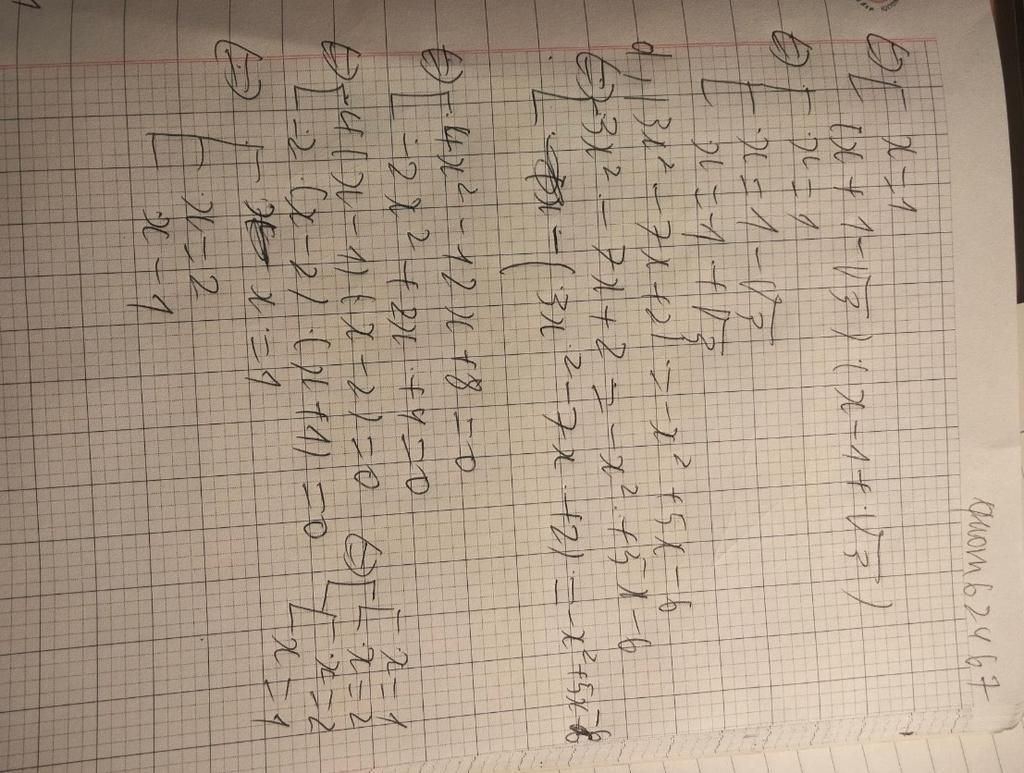 anom62467
⇔ [ x = 1
(x + 1 - √3) (x - 1 + √3)
⇔ [ x = 1
x = 1 - √3
x = 1 + √3
d) |3x² - 7x + 2| = -x² + 5x - 6
⇔ [ 3x² - 7x + 2 = -x² + 5x - 6
-(3x² - 7x + 2) = -x² + 5x - 6
⇔ [ 4x² - 12x + 8 = 0
-2x² + 2x + 4 = 0
⇔ [ 4(x - 1)(x - 2) = 0
-2·(x - 2)·(x + 1) = 0
⇔ [ [ x = 1
x = 2
[ x = 2
x = 1
⇔ [ x = 1
x = 2
x - 1